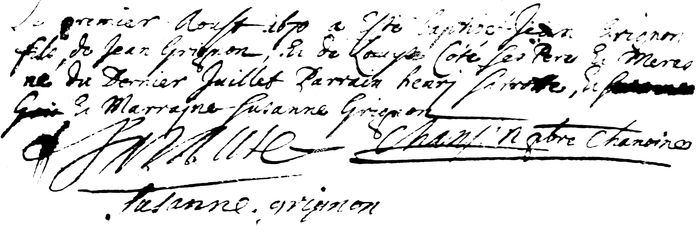 Le premier Aoust 1670 a Esté baptisé Jean Grignon
fils, de Jean Grignon, Et de Louyse Coté ses Pere Et Mere
né du Dernier Juillet Parrain henri Sarrotte, Et
Et Marrayne Susanne Grignon
Chans. N pbre Chanoine
Susanne. grignon